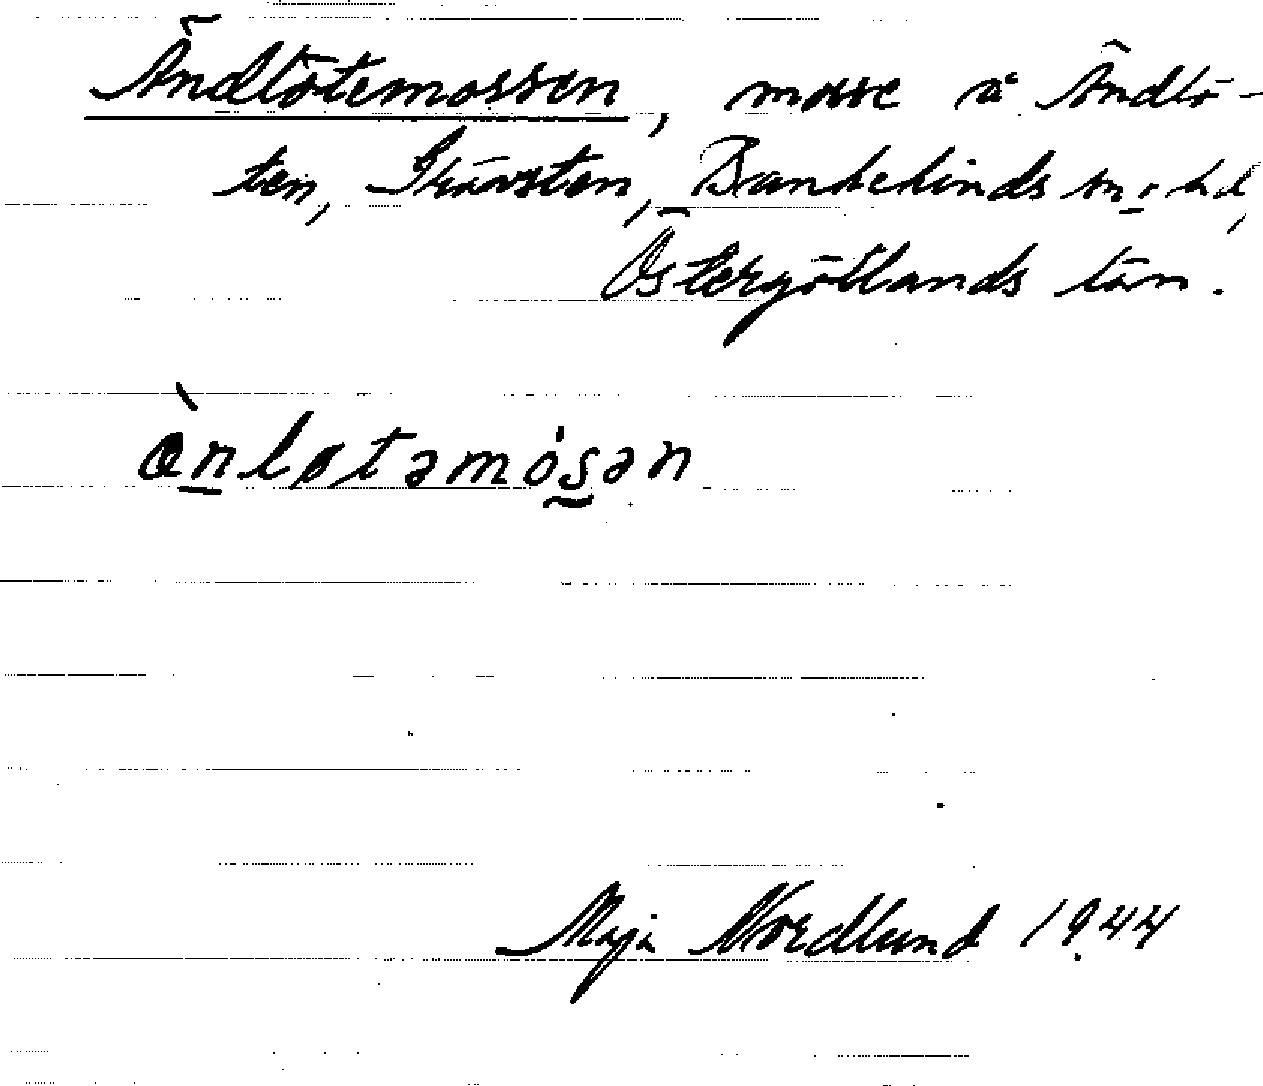 Ändlötemossen, mosse å Ändlö-
ten, Skärsten, Bankekinds sn o hd,
Östergötlands län.
ànløtəmósən
Maja Nordlund 1944